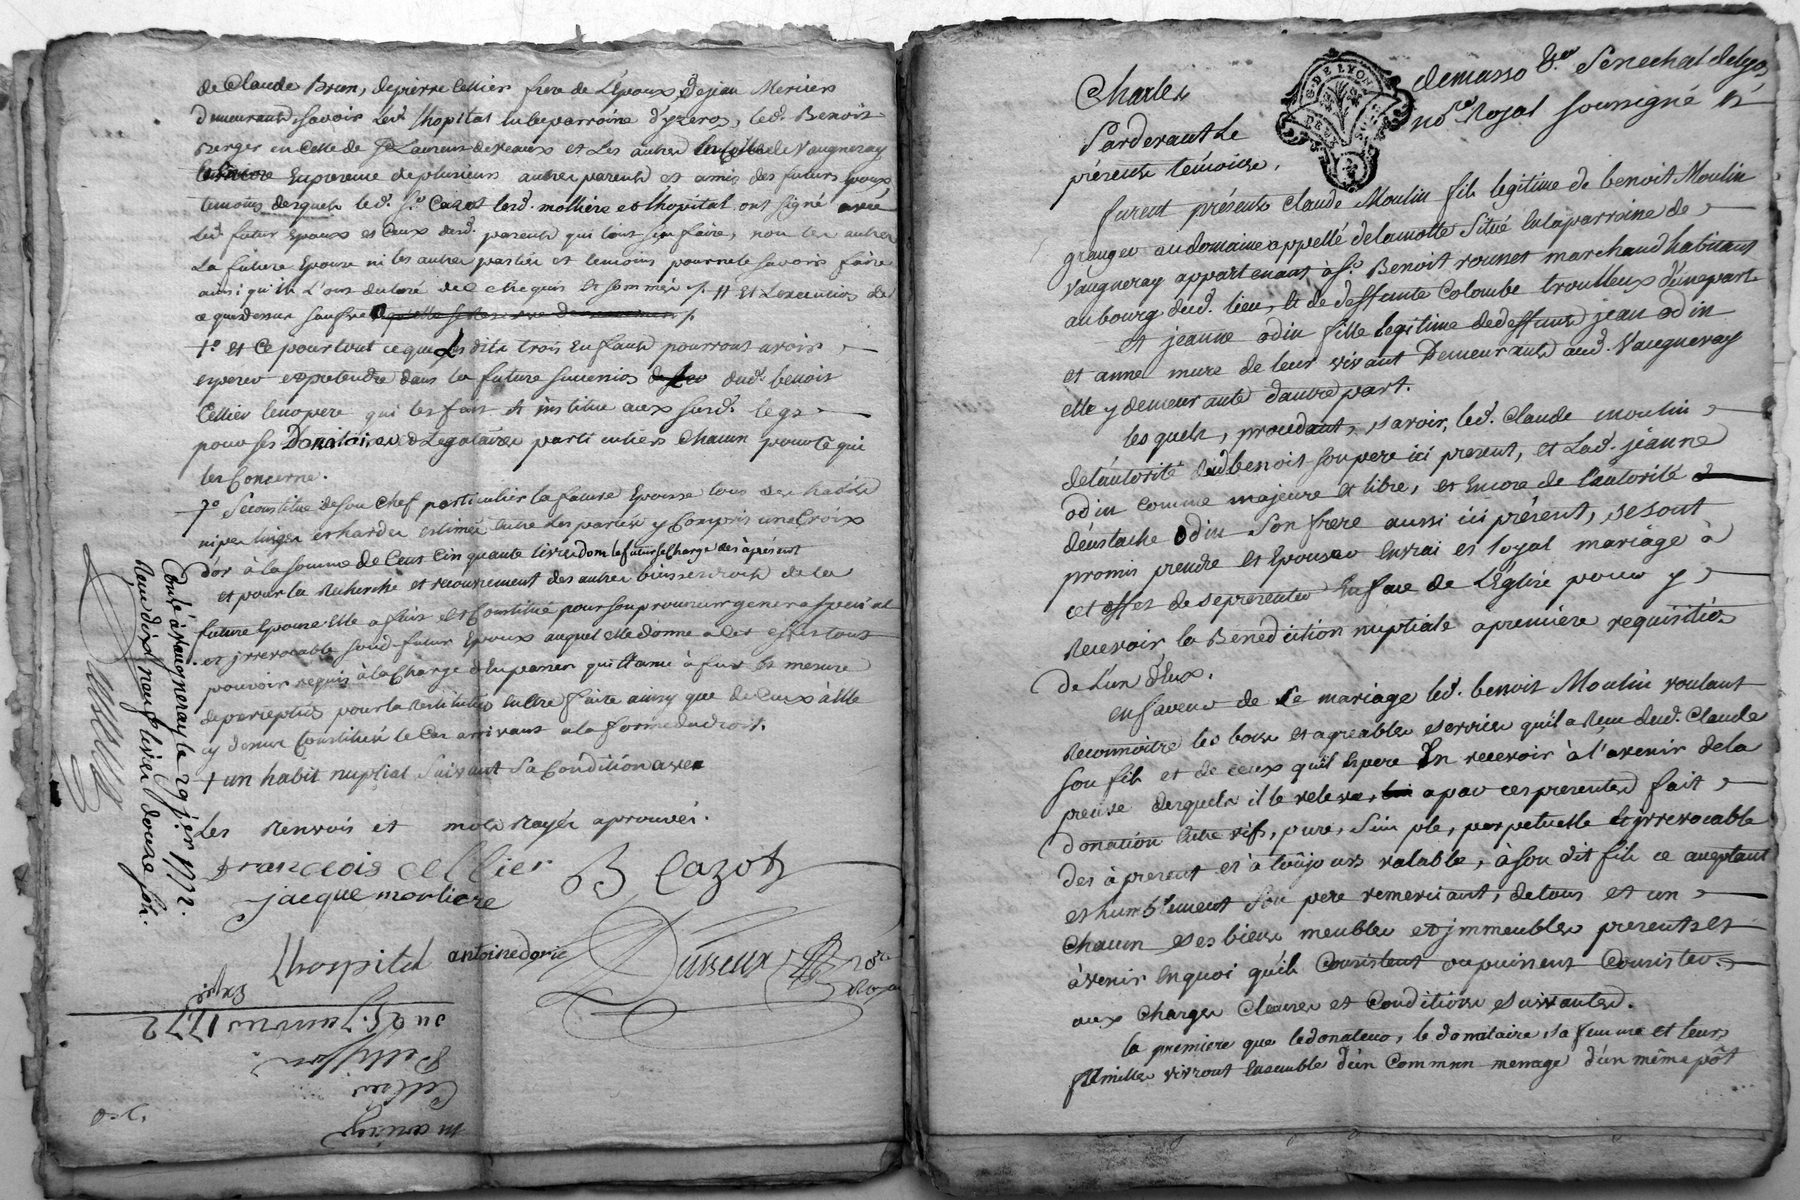 de Claude Brun, de pierre Cellier frere de L'Epoux, & de jean Mercier
Demeurants, savoir led. Lhopital en la parroisse d'yzeron, led. Benoit
Berger en Celle de St Laurens de vaux et Les autres en Celle de Vaugneray
En presence de plusieurs autres parents et amis des futurs Epoux
temoins desquels led. Sr. Cazot lesd. molliere et lhopital ont signé avec
led. futur Epoux et Ceux desd. parents qui l'ont sçu faire, non les autres
La future Epouse ni les autres parties et temoins pour ne le savoir faire
ainsi qu'ils L'ont declaré de ce enquis et sommés ./. # Et L'execution de
ce que dessus sauf
1o. et Ce pour tout ce que Les dits trois Enfants pourront avoir
esperer et pretendre dans la future succession dud. benoit
Cellier leur pere qui les fait et institue aux susd. legs
pour ses Donataires & Legataires particuliers Chacun pour ce qui
les Concerne.
7o. Se constitue de son Chef particulier la future Epouse tous ses habits
nipes linges et hardes estimés entre les parties y Compris une Croix
d'or à la somme de Cent Cinquante livres dont le futur se Charge dès à présent
et pour la Recherche et recouvrement des autres biens et droits de la
future Epouse Elle a fait et Constitué pour son procureur general special
et jrrevocable sond. futur Epoux auquel elle donne a cet effet tout
pouvoir requis à la Charge d'En passer quittance à fur et mesure
de perception pour la restitution En Etre faite ainsy que de Ceux à Elle
cy dessus Constitués le Cas arrivant a la forme du droit.
+ un habit nuptial suivant sa Condition avec
Les Renvois et mots Rayés aprouvés.
francois cellier B Cazot
jacque morliere
Lhospital antoine dorie Dusseux nore Royal
Conle. à Vaugneray le 29 jer 1772.
Reçu dix neuf livres douze sols.
Dusseux
Exp.
du 25 Janvier 1772
Cellier
mariage
Charles
Pardevant Le
présents témoins.
G. DE LYON
DEUX S.
demasso Ser. Senechal de Lyon
nore. Royal soussigné &
furent présents Claude Moulin fils legitime de benoit Moulin
granger au domaine appellé de la motte Situé En la parroisse de
Vaugneray appartenant à Sr. Benoit rounet marchand habitant
au bourg dud. lieu, et de deffunte Colombe troulleux d'une part
et jeanne odin fille legitime de deffunts jean odin
et anne mure de leur vivant Demeurants aud. Vaugneray
elle y demeurante d'autre part.
Lesquels, procedants, savoir, led. Claude moulin
de l'autorité dud. benoit son pere ici present, et Lad. jeanne
odin comme majeure et libre, et Encore de l'autorité
d'eustache odin Son frere aussi ici présent, se sont
promis prendre et Epouser En vrai et loyal mariage à
cet effet de se presenter En face de L'Eglise pour y
Recevoir la Benediction nuptiale a premiére requisition
De L'un d'Eux.
En faveur de Ce mariage led. benoit Moulin voulant
Reconnoitre les bons et agreables services qu'il a Reçu dud. Claude
son fils et de ceux qu'il Espere En recevoir à l'avenir de la
preuve desquels il le releve, a par ces presentes fait
donation Entre vifs, pure, simple, perpetuelle & jrrevocable
des à present et à toûjours valable, à son dit fils ce acceptant
et humblement son pere remerciant, de tous et un
Chacun ses biens meubles et jmmeubles presents et
à venir En quoi qu'ils Consistent ou puissent Consister
aux Charges Clauses et Conditions suivantes.
La premiere que le donateur, le donataire sa femme et leurs
familles vivront Ensemble d'un Commun menage d'un même pôt